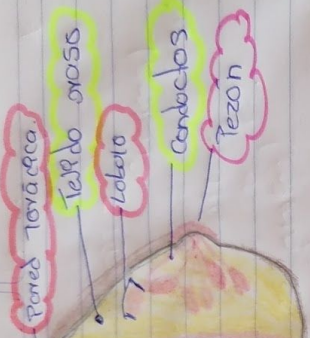 Pared Torácica
Tejido graso
Lobulo
Conductos
Pezon